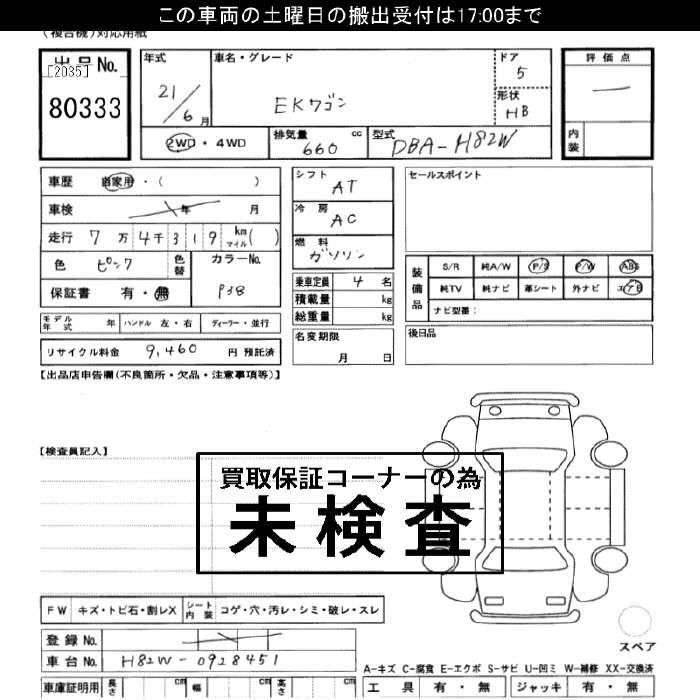 この車両の土曜日の搬出受付は17:00まで
(複合機)対応用紙
出品No.
[2035]
80333
年式
21/6月
車名・グレード
EKワゴン
ドア
5
形状
HB
評価点
一
内装
2WD・4WD
排気量
660
cc
型式
DBA-H82W
車歴 自家用・( )
車検 年 月
走行 7万4千319 km マイル( )
色 ピンク
色替
カラーNo.
P38
保証書 有・無
シフト
AT
冷房
AC
燃料
ガソリン
乗車定員 4 名
積載量 kg
総重量 kg
セールスポイント
装備品
S/R 純A/W P/S P/W ABS
純TV 純ナビ 革シート 外ナビ エアB
ナビ型番:
モデル年式 年 ハンドル 左・右 ディーラー・並行
名変期限
月 日
後日品
リサイクル料金 9,460 円 預託済
【出品店申告欄(不良箇所・欠品・注意事項等)】
【検査員記入】
買取保証コーナーの為
未検査
FW キズ・トビ石・割レX シート内装 コゲ・穴・汚レ・シミ・破レ・スレ
登録No.
車台No. H82W-0928451
車庫証明用 長さ cm 幅 cm 高さ cm
スペア
A-キズ C-腐食 E-エクボ S-サビ U-凹ミ W-補修 XX-交換済
工具 有・無 ジャッキ 有・無